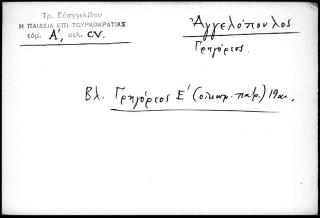 Τρ. Εὐαγγελίδου
Η ΠΑΙΔΕΙΑ ΕΠΙ ΤΟΥΡΚΟΚΡΑΤΙΑΣ
τόμ. Α', σελ. CV.
Ἀγγελόπουλος
Γρηγόριος.
Βλ. Γρηγόριος Ε' (οἰκουμ. πατρ.) 19